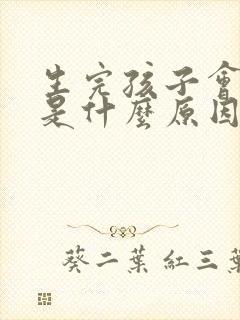 生完孩子會
是什麼原因
葵二葉 紅三葉